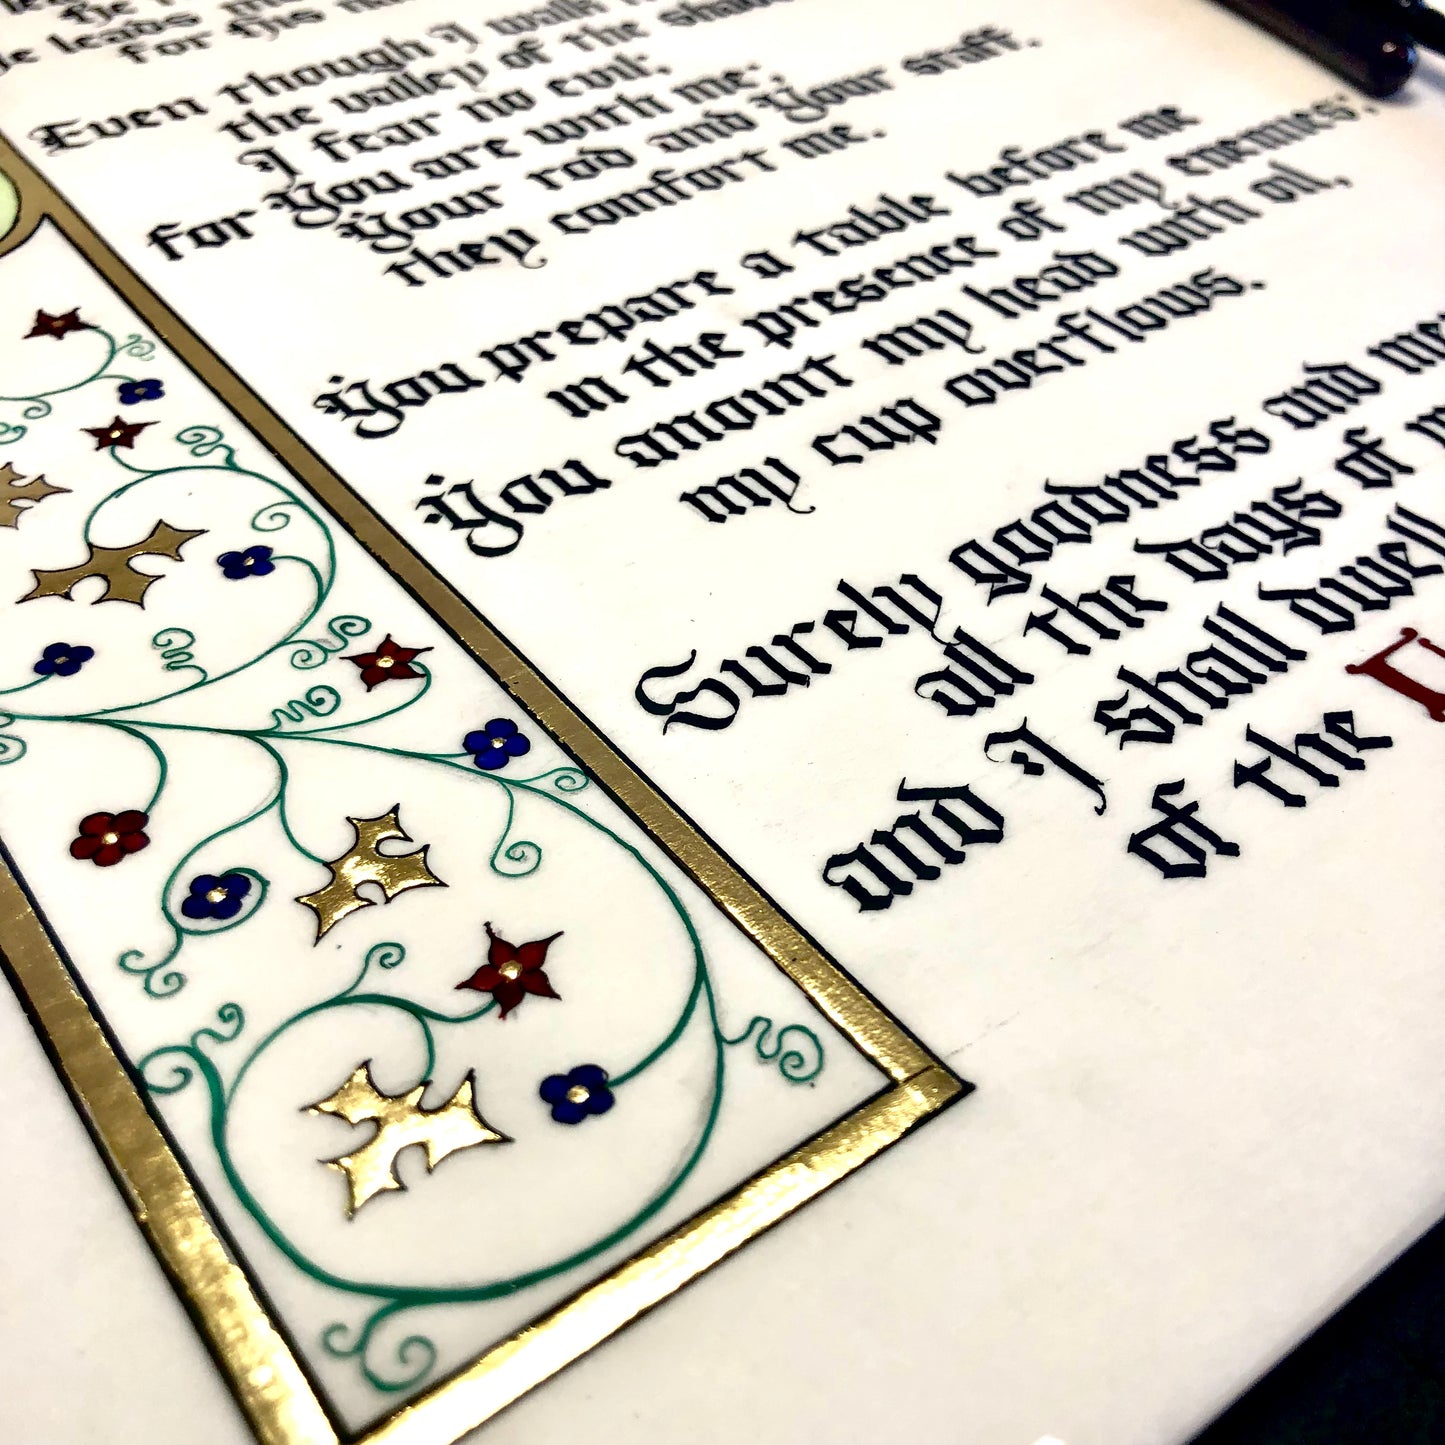 He
He leads me
for His
Even though I walk
the valley of the
I fear no evil;
for You are with me;
Your rod and Your staff,
they comfort me.
You prepare a table before me
in the presence of my enemies;
You anoint my head with oil,
my cup overflows.
Surely goodness and
all the days of
and I shall dwell
of the